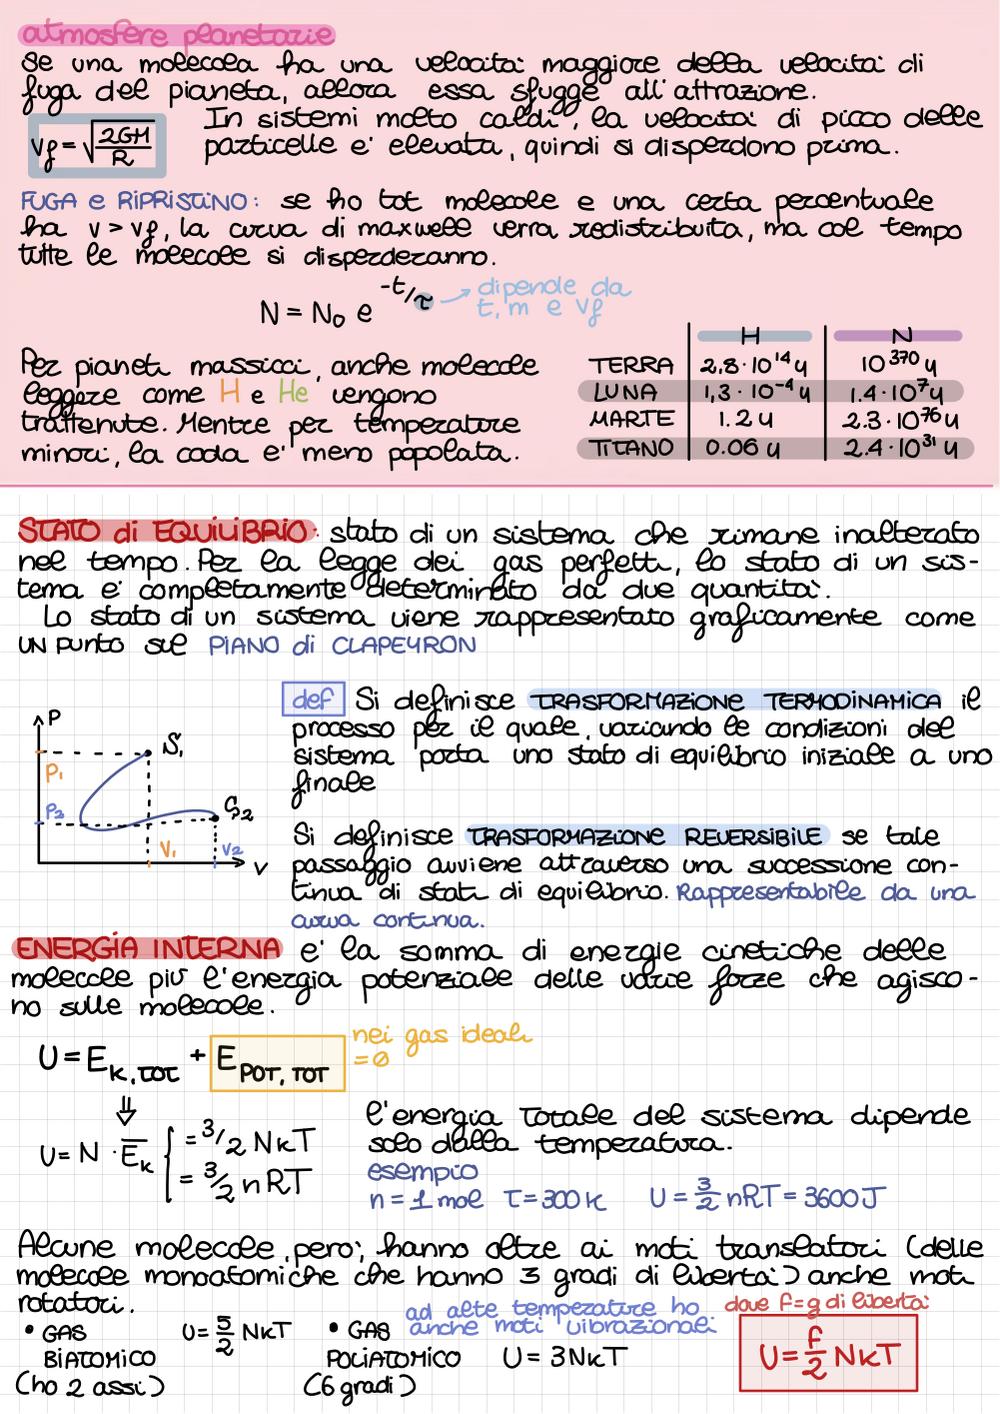 atmosfere planetarie
Se una molecola ha una velocità maggiore della velocità di
fuga del pianeta, allora essa sfugge all'attrazione.
Vf = √2GM/R
In sistemi molto caldi, la velocità di picco delle
particelle e' elevata, quindi si disperdono prima.
FUGA e RIPRISTINO: se ho tot molecole e una certa percentuale
ha v > vf, la curva di maxwell verra redistribuita, ma col tempo
tutte le molecole si disperderanno.
N = N₀ e^-t/τ → dipende da
t, m e vf
Per pianeti massicci, anche molecole
leggere come H e He vengono
trattenute. Mentre per temperature
minori, la coda e' meno popolata.
H N
TERRA 2.8·10¹⁴ y 10³⁷⁰ y
LUNA 1,3·10⁻⁴ y 1.4·10⁷ y
MARTE 1.2 y 2.3·10⁷⁶ y
TITANO 0.06 y 2.4·10³¹ y
STATO di EQUILIBRIO: stato di un sistema che rimane inalterato
nel tempo. Per la legge dei gas perfetti, lo stato di un sis-
tema e' completamente determinato da due quantità.
Lo stato di un sistema viene rappresentato graficamente come
un punto sul PIANO di CLAPEYRON
P
S₁
P₁
P₂
S₂
V₁
V₂
V
def Si definisce TRASFORMAZIONE TERMODINAMICA il
processo per il quale, variando le condizioni del
sistema porta uno stato di equilibrio iniziale a uno
finale
Si definisce TRASFORMAZIONE REVERSIBILE se tale
passaggio avviene attraverso una successione con-
tinua di stati di equilibrio. Rappresentabile da una
curva continua.
ENERGIA INTERNA e' la somma di energie cinetiche delle
molecole più l'energia potenziale delle varie forze che agisco-
no sulle molecole.
U = E K,TOT + E POT, TOT nei gas ideali
= 0
⇓
U = N · E̅k { = 3/2 NkT
= 3/2 nRT
l'energia totale del sistema dipende
solo dalla temperatura.
esempio
n = 1 mol T = 300 K U = 3/2 nRT = 3600 J
Alcune molecole, pero', hanno oltre ai moti translatori (delle
molecole monoatomiche che hanno 3 gradi di libertà) anche moti
rotatori.
• GAS BIATOMICO U = 5/2 NkT
(ho 2 assi)
ad alte temperature ho
anche moti vibrazionali
• GAS POLIATOMICO U = 3NkT
(6 gradi)
dove f = g di libertà
U = f/2 NkT